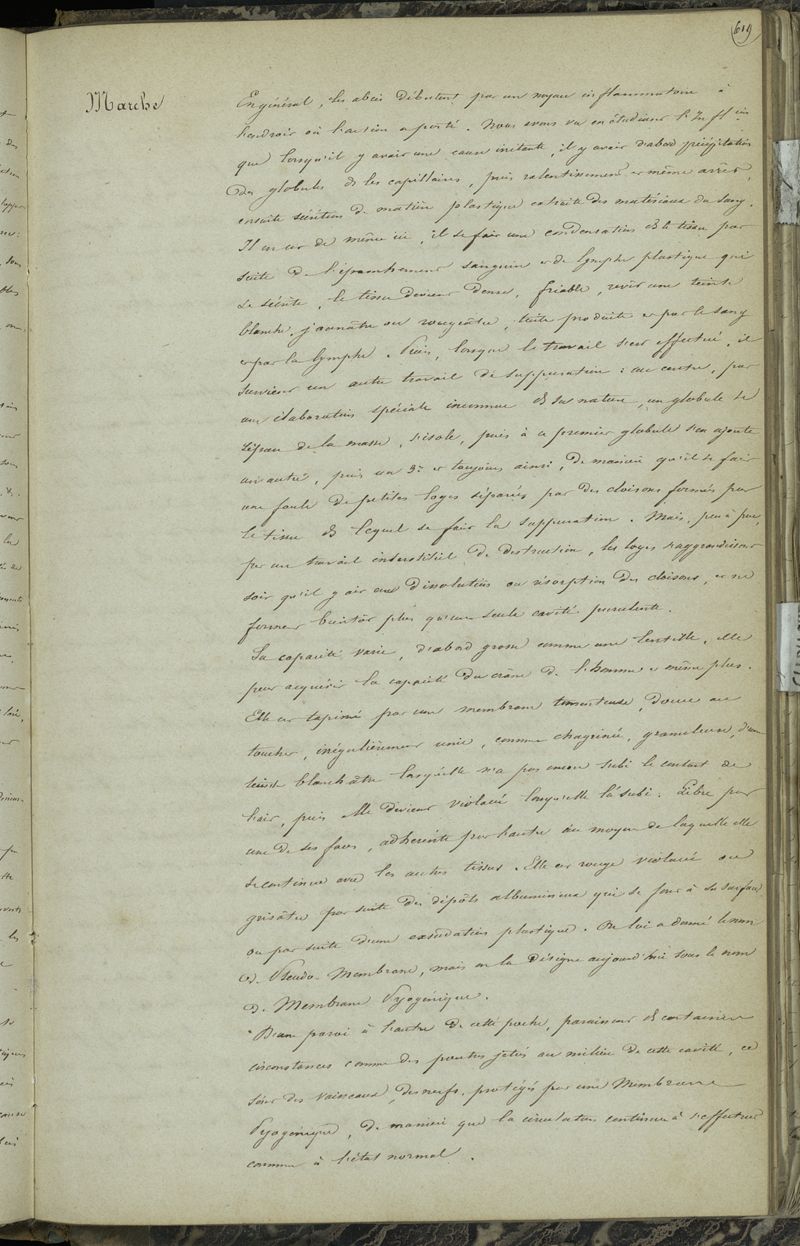 619
Marche
En général, les abcès débutent par un noyau inflammatoire à
l'endroit où l'action a porté. Nous avons vu en étudiant l'
que lorsqu'il y avait une cause irritante, il y avait d'abord précipitation
des globules ds les capillaires, puis ralentissement et même arrêt,
ensuite sécrétion de matière plastique extraite des matériaux du sang.
Il en est de même ici, il se fait une condensation ds le tissu par
suite de l'épanchement sanguin et de lymphe plastique qui
se sécrète, le tissu devient dense, friable, revêt une teinte
blanche, jaunâtre ou rougeâtre, teinte produite et par le sang
et par la lymphe. Puis, lorsque le travail s'est effectué, il
survient un autre travail de suppuration : au centre, par
une élaboration spéciale inconnue ds sa nature, un globule se
sépare de la masse, s'isole, puis à ce premier globule s'en ajoute
un autre, puis un 3e et toujours ainsi, de manière qu'il se fait
une foule de petites loges séparées par des cloisons formées par
le tissu ds lequel se fait la suppuration. Mais, peu à peu,
par un travail interstitiel de destruction, les loges s'aggrandissent
soit qu'il y ait eu dissolution ou résorption des cloisons, et ne
forment bientôt plus qu'une seule cavité purulente.
Sa capacité varie, d'abord grosse comme une lentille, elle
peut acquérir la capacité du crâne de l'homme et même plus.
Elle est tapissée par une membrane tomenteuse, douce au
toucher, irrégulièrement unie, comme chagrinée, granuleuse, d'une
teinte blanchâtre lorsqu'elle n'a pas encore subi le contact de
l'air, puis elle devient violacée lorsqu'elle l'a subi. Libre par
une de ses faces, adhérente par l'autre au moyen de laquelle elle
se continue avec les autres tissus. Elle est rouge violacée ou
grisâtre par suite des dépôts albumineux qui se font à sa surface
ou par suite d'une exsudation plastique. On lui a donné le nom
de Pseudo-Membrane, mais on la désigne aujourd'hui sous le nom
de Membrane Pyogénique.
D'une paroi à l'autre de cette poche, paraissent ds certaines
circonstances comme des ponts jetés au milieu de cette cavité, ce
sont des vaisseaux, des nerfs, protégés par une Membrane
Pyogénique, de manière que la circulation continue à s'effectuer
comme à l'état normal.